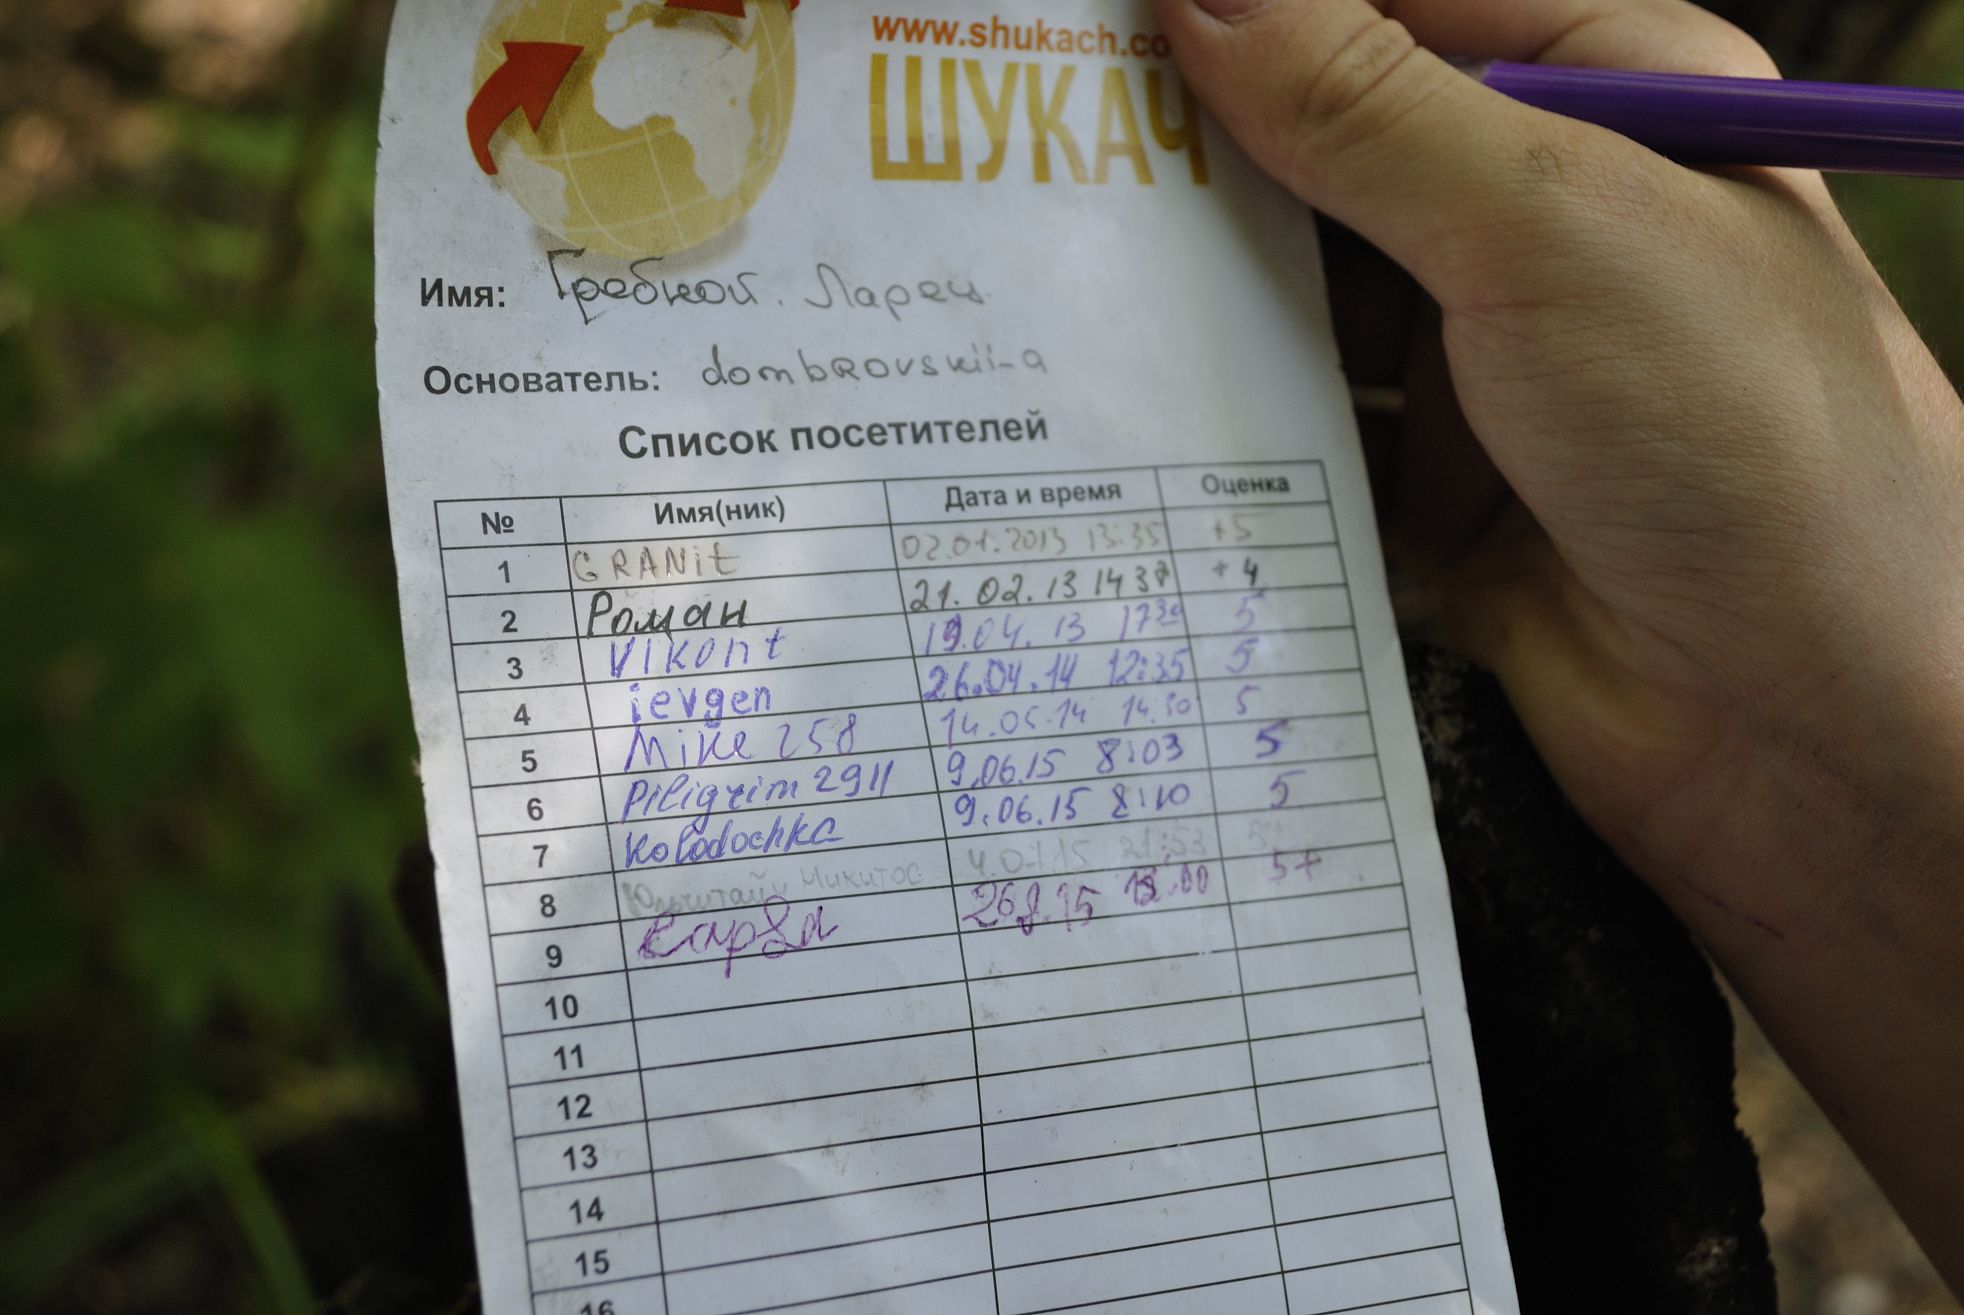 www.shukach.co
ШУКАЧ
Имя: Гребной. Ларец.
Основатель: dombrovskii-a
Список посетителей
№ Имя(ник) Дата и время Оценка
1 GRANit 02.01.2013 13:35 +5
2 Роман 21.02.13 14 37 +4
3 Vikont 19.04.13 17 30 5
4 ievgen 26.04.14 12:35 5
5 Mike 258 14.05.14 14.30 5
6 Piligrim 2911 9.06.15 8:03 5
7 Kolodochka 9.06.15 8:10 5
8 Никитос 21:53
9 26.8.15 5+
10
11
12
13
14
15
16